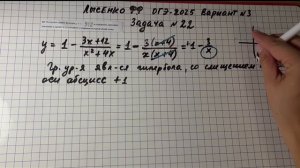 Лысенко ФФ ОГЭ-2025 Вариант №3
Задача №22
y = 1 - 3x+12 / x²+4x = 1 - 3(x+4) / x(x+4) = 1 - 3/x
Гр. ур-я явл-ся гипербола, со смещением
оси абсцисс +1